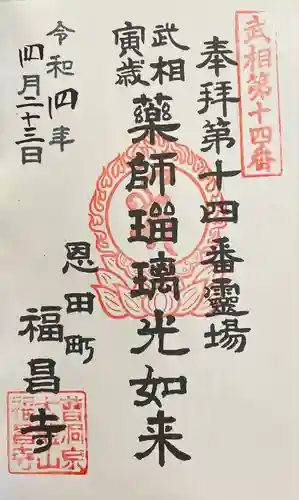 武相第十四番
奉拝第十四番靈場
武相
寅歳
藥師瑠璃光如来
令和四年
四月二十三日
恩田町
福昌寺
曹洞宗
福昌寺